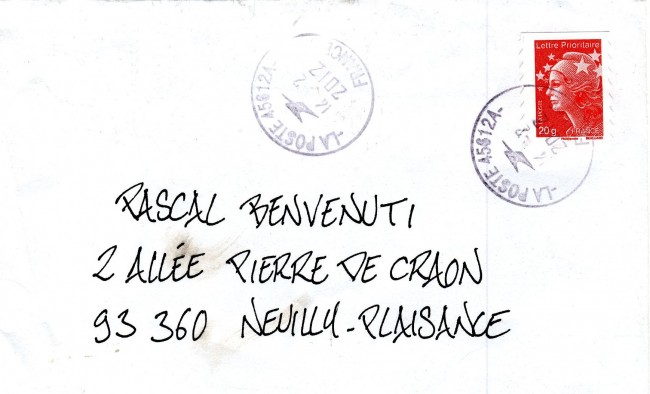 LA POSTE 45812A-
14 - 2
2012
FRANCE
Lettre Prioritaire
20g FRANCE
-LA POSTE 45812A-
PASCAL BENVENUTI
2 ALLÉE PIERRE DE CRAON
93 360 NEUILLY-PLAISANCE